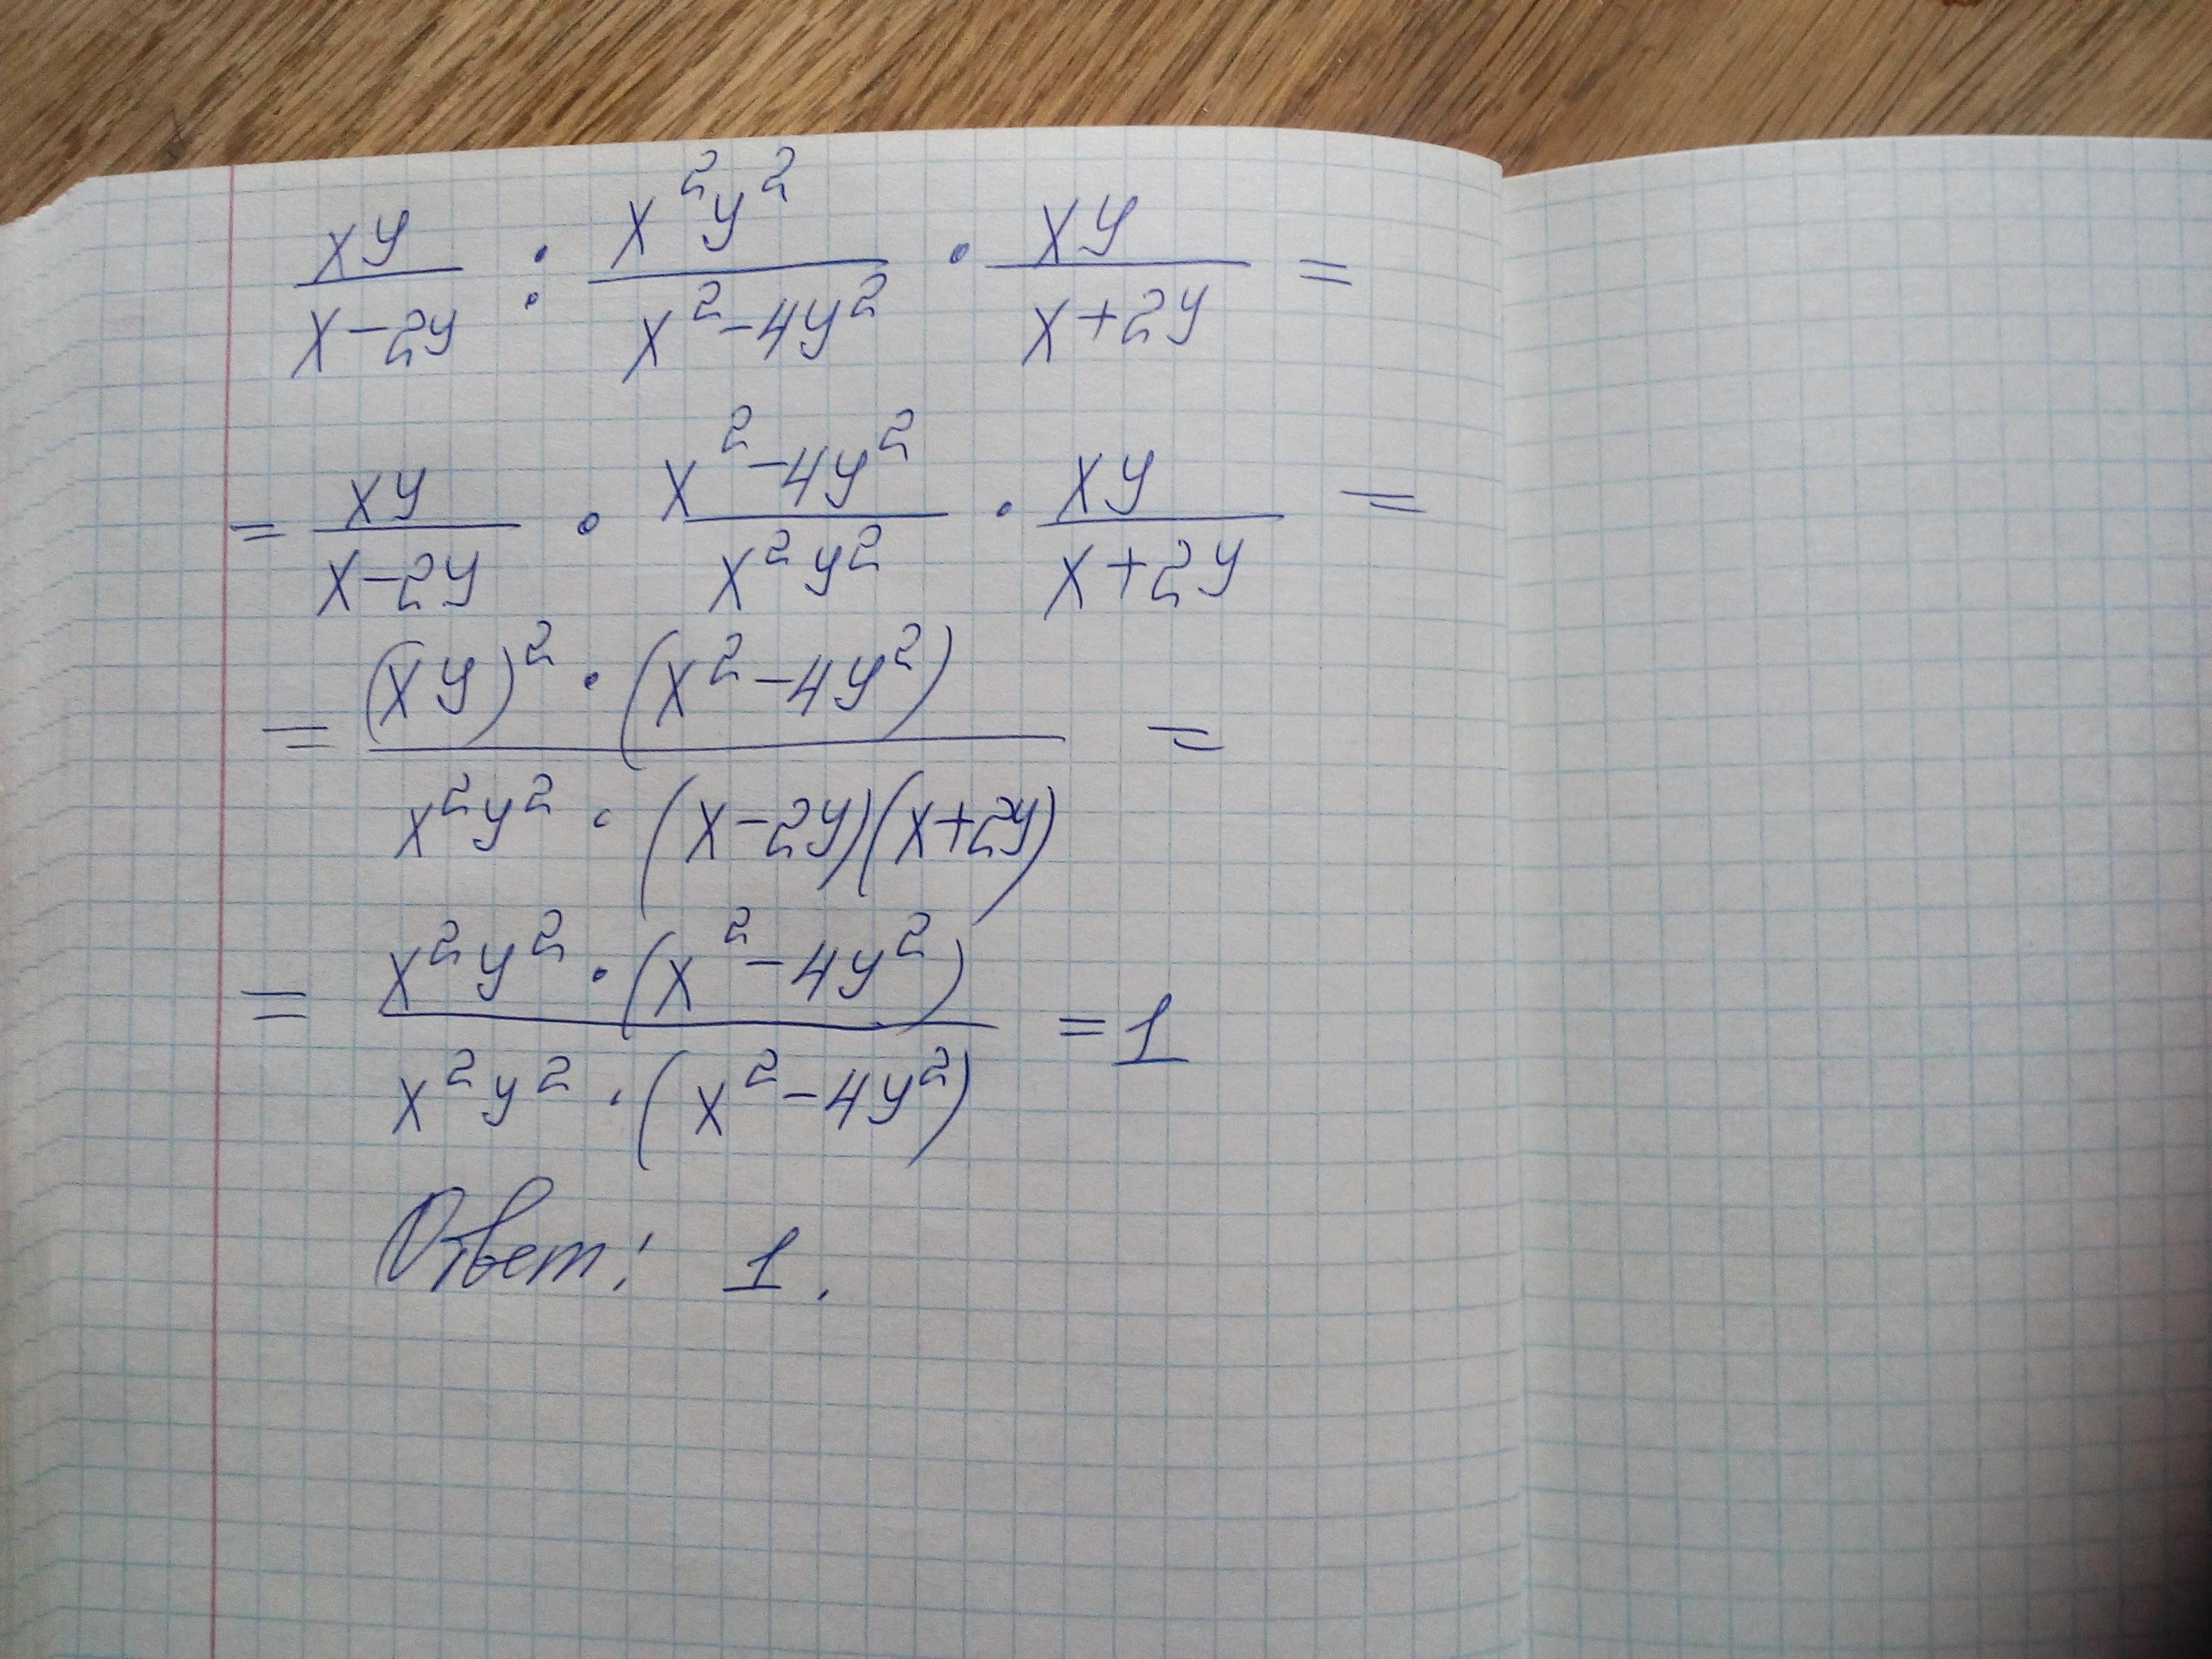 xy/(x-2y) : x²y²/(x²-4y²) · xy/(x+2y) =
= xy/(x-2y) · (x²-4y²)/(x²y²) · xy/(x+2y) =
= ((xy)² · (x²-4y²))/(x²y² · (x-2y)(x+2y)) =
= (x²y² · (x²-4y²))/(x²y² · (x²-4y²)) = 1
Ответ: 1.